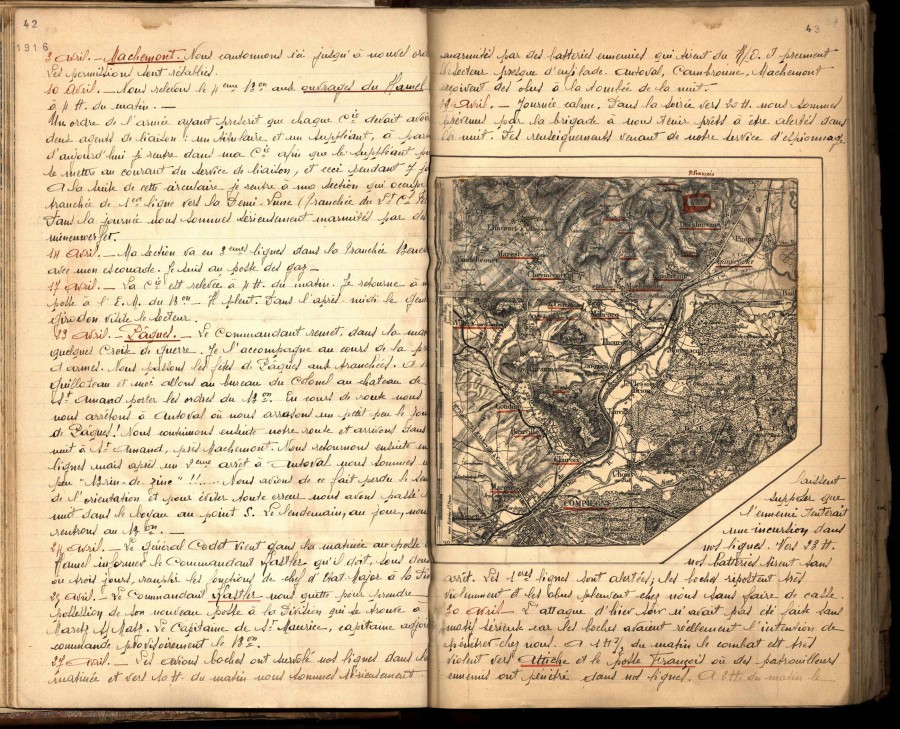 42
1916
9 Avril. — Machemont. Nous cantonnons ici jusqu'à nouvel ord
Les permissions sont rétablies.
10 Avril. — Nous relevons le 4ème Bon aux ouvrages du Hamel
à 4 H. du matin. —
Un ordre de l'armée ayant prescrit que chaque Cie devait avoir
deux agents de liaison : un titulaire et un suppléant, à par
d'aujourd'hui je rentre dans ma Cie afin que le suppléant pu
se mettre au courant du service de liaison, et ceci pendant 7 jo
A la suite de cette circulaire je rentre à ma section qui occupe
tranchée de 1ère ligne vers la Demi-Lune (tranchée du Lt Cl
Dans la journée nous sommes sérieusement marmités par des
minenwerfer.
14 Avril. — Ma section va en 2èmes lignes dans la tranchée
avec mon escouade. Je suis au poste des gaz —
17 Avril. — La Cie est relevée à 4 H. du matin. Je retourne à m
poste à l'E.M. du Bon — Il pleut. Dans l'après midi le géné
Girodon visite le secteur.
23 Avril. — Pâques. — Le Commandant remet, dans la mat
quelques Croix de Guerre. Je l'accompagne au cours de la pr
d'armes. Nous passons les fêtes de Pâques aux tranchées. A
Guilloteau et moi allons au bureau du Colonel au château de
St Amand porter les ordres du Bon. En cours de route nous
nous arrêtons à Antoval où nous arrosons un petit peu le jour
de Pâques! Nous continuons ensuite notre route et arrivons dans
nuit à St Amand, près Machemont. Nous retournons ensuite en
lignes mais après un 2ème arrêt à Antoval nous sommes u
peu "Brin-de-zinc"!!..... Nous avions de ce fait perdu le sens
de l'orientation et pour éviter toute erreur nous avons passé
nuit dans le boyau au point S. Le lendemain, au jour, nous
rentrons au Bon. —
24 Avril. — Le général Codet vient dans la matinée au poste
Hamel informer le Commandant Gastler qu'il doit, sous deux
ou trois jours, remplir les fonctions de chef d'Etat-Major à la Div
25 Avril. — Le Commandant Gastler nous quitte pour prendre
possession de son nouveau poste à la Division qui se trouve à
Marest s/ Matz. Le Capitaine de St Maurice, capitaine adjoi
commande provisoirement le Bon
27 Avril. — Des avions boches ont survolé nos lignes dans la
matinée et vers 10 H. du matin nous sommes sérieusement
43
marmités par des batteries ennemies qui tirent du N/E. et prennent
le secteur presque d'enfilade. Antoval, Cambronne, Machemont
reçoivent des obus à la tombée de la nuit.
29 Avril. — Journée calme. Dans la soirée vers 20 H. nous sommes
prévenus par la brigade à nous tenir prêts à être alertés dans
la nuit. Des renseignements venant de notre service d'espionnage
P. François
Elincourt
Marest
Chevincourt
Pimprez
Ribécourt
Thourotte
Giraumont
Coudun
Janville
Clairoix
Choisy
COMPIEGNE
laissent
supposer que
l'ennemi tenterait
une incursion dans
nos lignes. Vers 23 H.
nos batteries tirent sans
arrêt. Les 1ères lignes sont alertées; les boches ripostent très
violemment et les obus pleuvent chez nous sans faire de casse.
30 Avril — L'attaque d'hier soir n'avait pas été faite sans
motif sérieux car les boches avaient réellement l'intention de
pénétrer chez nous. A 1 H 1/2 du matin le combat est très
violent vers Attiche et le poste François où des patrouilleurs
ennemis ont pénétré dans nos lignes. A 2 H. du matin le